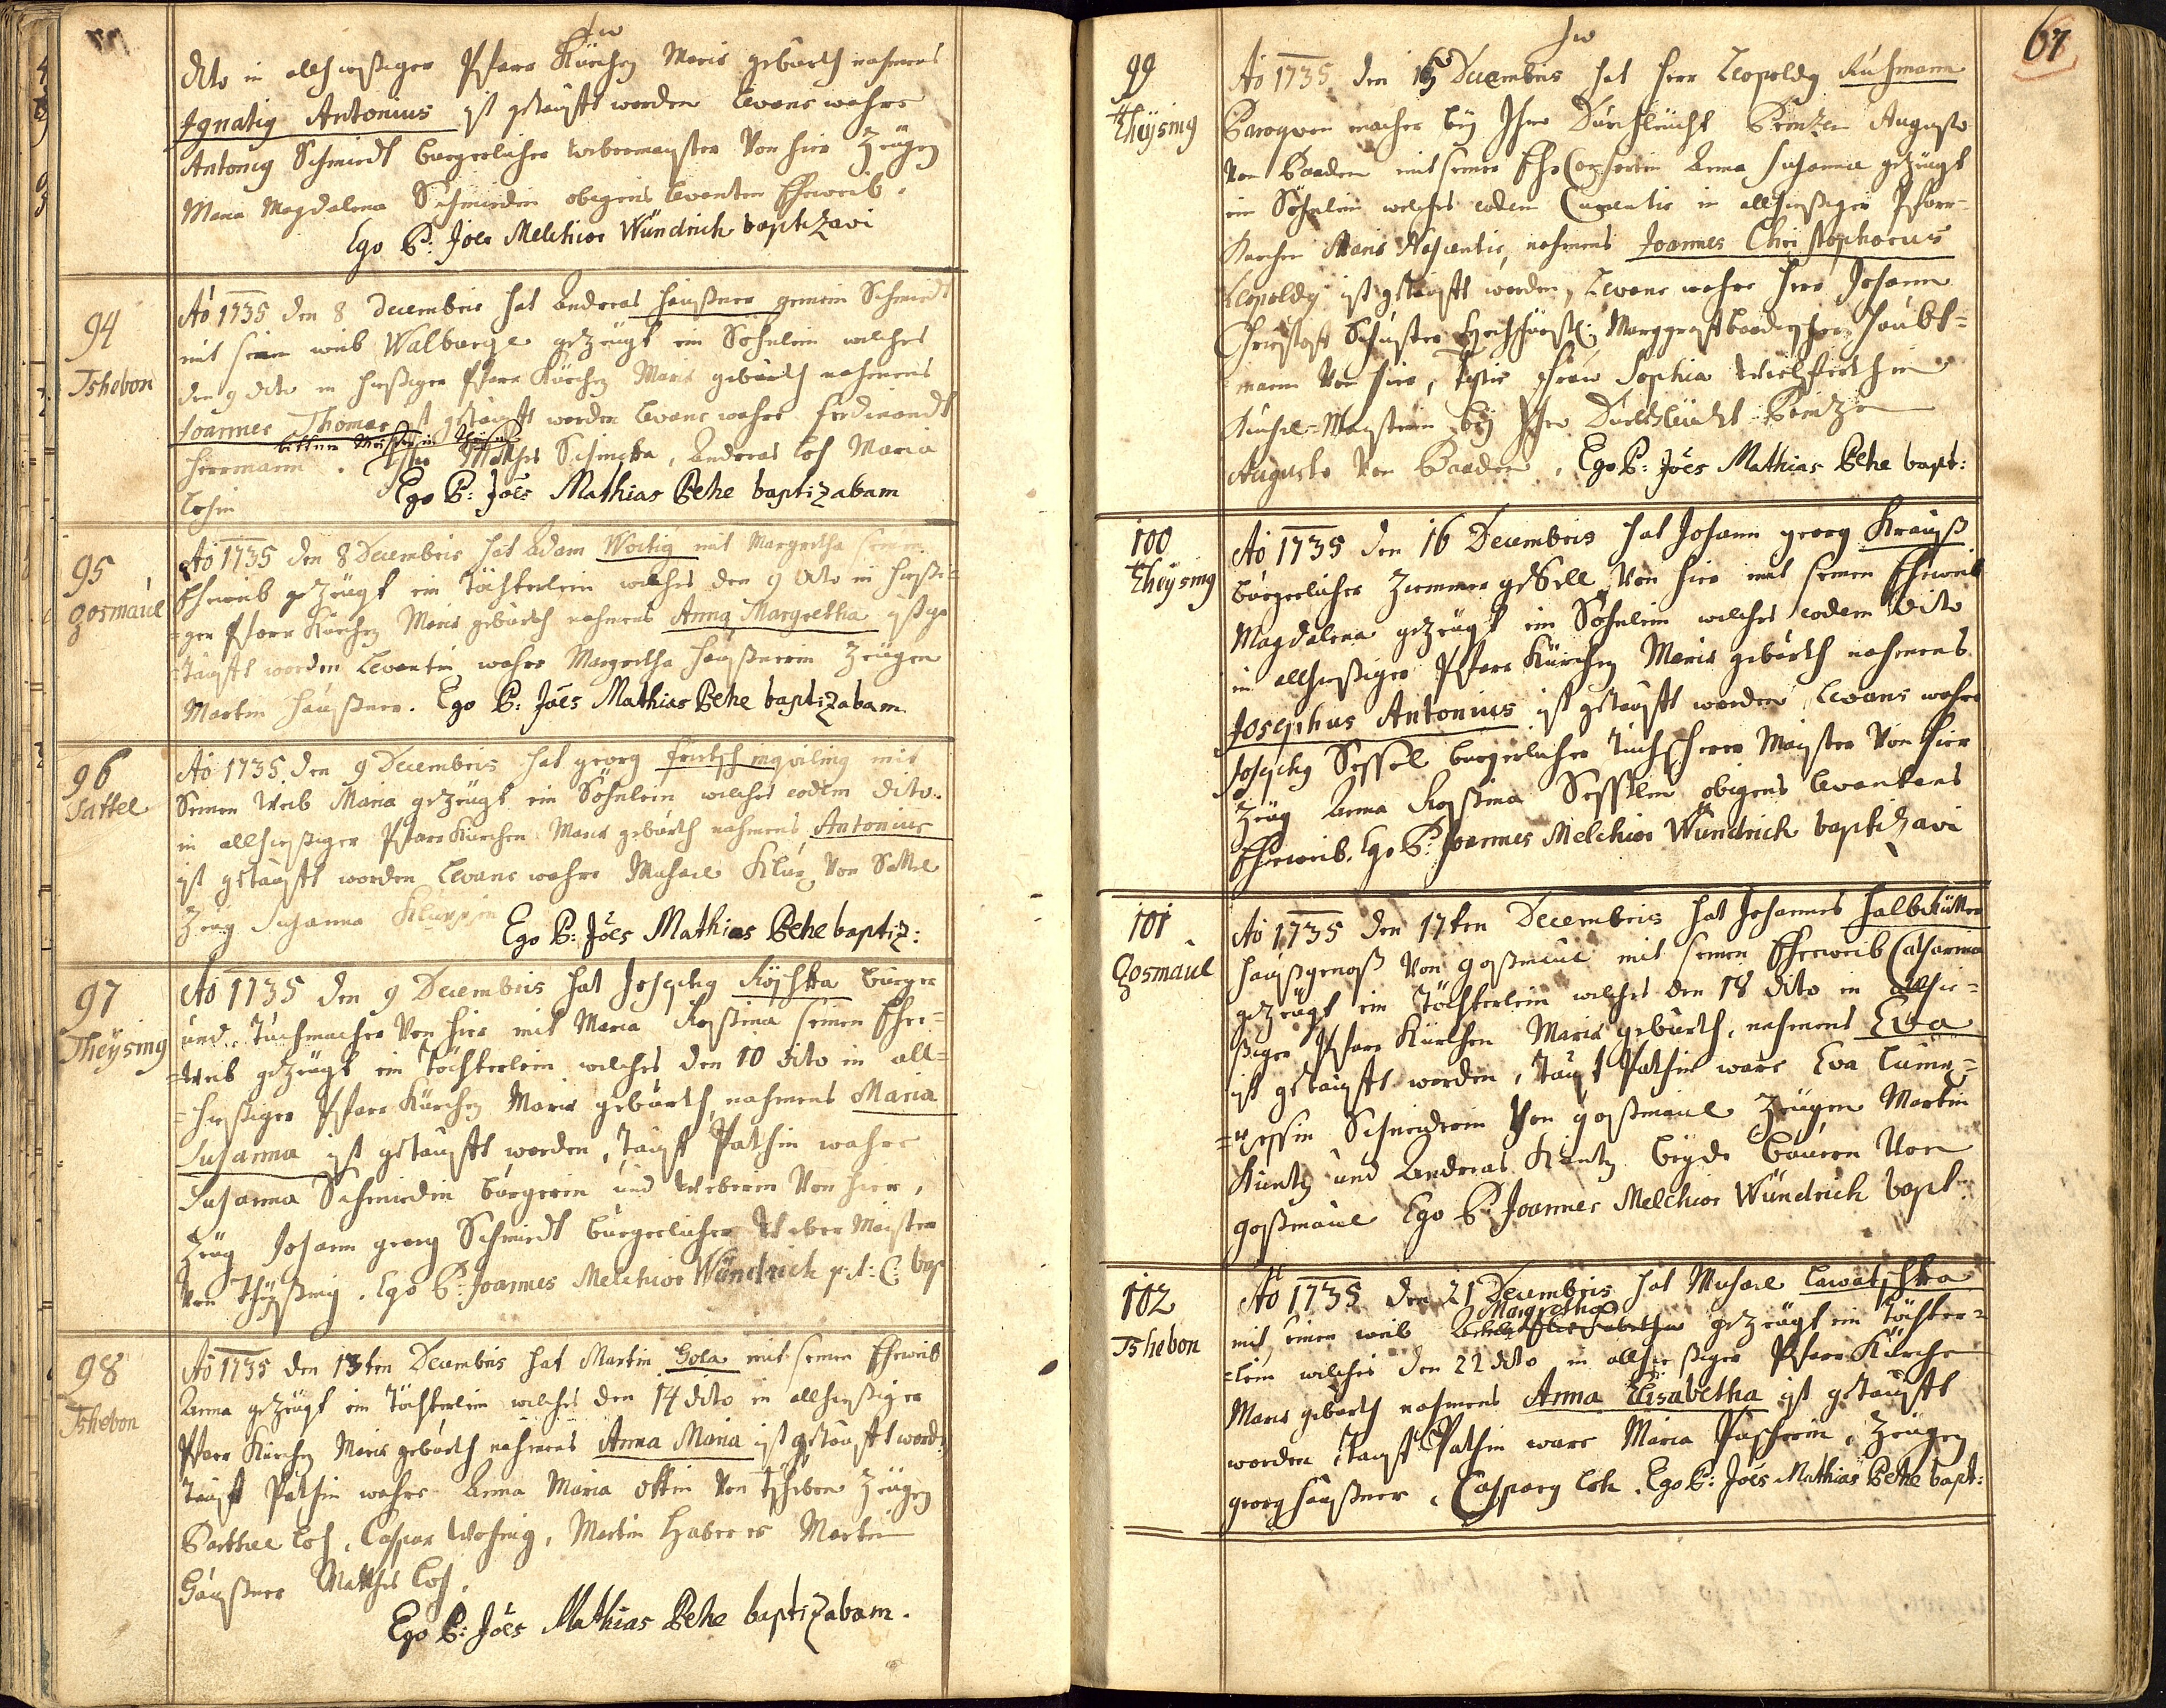 dito in allhießiger Pfarr Kürchen Maris gebürth nahmens
Ignatig Antonius ist getaufft worden Levans wahre
Antonig Schmiedt burgerlicher webermeyster Von hier Zeugen
Maria Magdalena Schmiedin obigens levanten Eheweib.
Ego P: Joes Melchior Wündrich baptizavi
94
Tshebon
Ao 1735 den 8 Decembris hat Andreas Haußner gemein Schmiedt
mit sein weib Walburge gezeugt ein Söhnlein welches
den 9 dito in hießiger Pfarr Kürchen Maris gebürth nahmens
Joannes Thomas ist getaufft worden Levans wahre Ferdinandt
Herrmann. Mathes Schneka, Andreas Loh Maria
Lohin
Ego P: Joes Mathias Behe baptizabam
95
Gosmaul
Ao 1735 den 8 Decembris hat Adam Woitig mit Margretha seinem
Eheweib gezeugt ein Töchterlein welches den 9 dito in hießi=
=gen Pfarr Kürchen Maris gebürth nahmens Anna Margretha ist ge
=taufft worden Levantin wahre Margretha Haußnerin Zeugen
Martin Haußner. Ego P: Joes Mathias Behe baptizabam
96
Sattel
Ao 1735 den 9 Decembris hat georg Fritsch inquiling mit
Seinen Weib Maria gezeugt ein Söhnlein welches eodem dito.
in allhießiger Pfarr Kürchen Maris gebürth nahmens Antonius
ist getaufft worden Levans wahre Michael Klug Von Sattel
Zeug Susanna
Ego P: Joes Mathias Behe baptiz:
97
Theysing
Ao 1735 den 9 Decembris hat Josephg Köschka burger
und Tuchmacher Von hier mit Maria Rosina seinen Ehe=
=Weib gezeugt ein Töchterlein welches den 10 dito in all=
=hießiger Pfarr Kürchen Maris gebürth, nahmens Maria
Susanna ist getaufft worden, Tauff Pathin wahre
Susanna Schmiedin burgerin und Weberin Von hier,
Zeug Johann georg Schmiedt burgerlicher Weber Maister
Von Theyßing. Ego P: Joannes Melchior Wündrich p: t: C: bap
98
Tshebon
Ao 1735 den 13ten Decembris hat Martin Gola mit seinen Eheweib
Anna gezeugt ein Töchterlein welches den 14 dito in allhießiger
Pfarr Kürchen Maris gebürth nahmens Anna Maria ist getaufft word:
Tauff Pathin wahre Anna Maria Ottin Von Tscheben Zeugen
Barthel Loh, Caspar Wohnig, Martin Haberes Martin
Haußner Mathes Loh.
Ego P: Joes Mathias Behe baptizabam.
67
99
Theysing
Ao 1735 den 15 Decembris hat Herr Leopoldg Ruhmann
Baroquen macher bey Ihro Durchleucht Printzen Augusto
Von Baaden mit seiner Ehe Consortin Anna Susanna gezeugt
ein Söhnlein welches eodem Currentis in allhießiger Pfarr=
Kürchen Maris Nascentis, nahmens Joannes Christophorus
Leopoldg ist getaufft worden, Levans wahre Herr Johann
Christoff Schuster Hochfürstl: Marggraff Baadischer Haubt=
mann Von hier, Testis Frau Sophia
Kuchel=Maysterin bey Ihro Durchleücht Printzen
Augusto Von Baaden. Ego P: Joes Mathias Behe bapt:
100
Theysing
Ao 1735 den 16 Decembris hat Johann georg Krauß
burgerlicher Zimmer gesell Von hier mit seinen Eheweib
Magdalena gezeugt ein Söhnlein welches eodem Dito
in allhießiger Pfarr Kürchen Maris gebürth nahmens
Josephus Antonius ist getaufft worden Levans wahre
Josephg Sessel burgerlicher Tuchscherer Mayster Von hier
Zeug Anna Rosina Sesslin obigens Levantens
Eheweib. Ego P: Joannes Melchior Wündrich baptizavi
101
Gosmaul
Ao 1735 den 17ten Decembris hat Johannes Halbritter
Haußgenoß Von goßmaul mit seinen Eheweib Catharina
gezeugt ein Töchterlein welches den 18 dito in allhie=
ßiger Pfarr Kürchen Maris gebürth, nahmens Eva
ist getaufft worden, Tauf Pathin ware Eva
Schneiderin Von goßmaul Zeugen Martin
Kuntz und Andreas Kuntz beyde bauern Von
goßmaul Ego P: Joannes Melchior Wündrich bapt:
102
Tshebon
Ao 1735 den 21 Decembris hat Michael Lawatschka
Margretha
mit seinen weib gezeugt ein Töchter=
=lein welches den 22 dito in allhießiger Pfarr Kürche
Maris gebürth nahmens Anna Elisabetha ist getaufft
worden, Tauff Pathin ware Maria Pascherin, Zeugen
georg Haußner, Casparg Loh. Ego P: Joes Mathias Behe bapt: